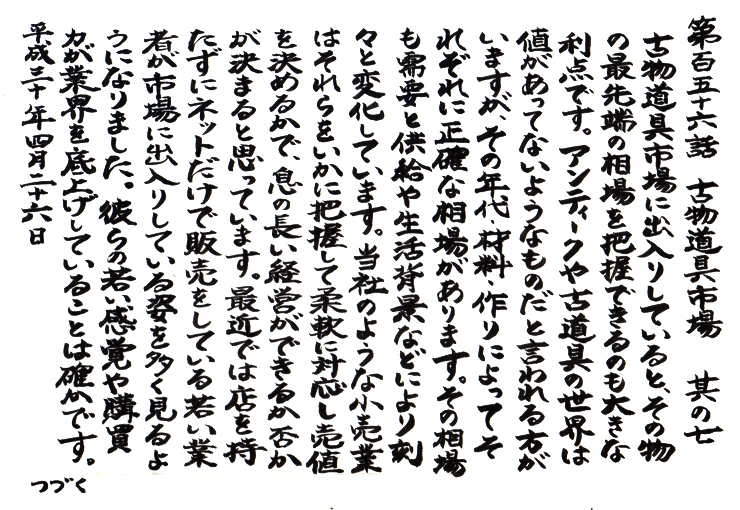 第百五十六話　古物道具市場　其の七
古物道具市場に出入りしていると、その物
の最先端の相場を把握できるのも大きな
利点です。アンティークや古道具の世界は
値があってないようなものだと言われる方が
いますが、その年代・材料・作りによってそ
れぞれに正確な相場があります。その相場
も需要と供給や生活背景などにより刻
々と変化しています。当社のような小売業
はそれらをいかに把握して柔軟に対応し売値
を決めるかで、息の長い経営ができるか否か
が決まると思っています。最近では店を持
たずにネットだけで販売をしている若い業
者が市場に出入りしている姿を多く見るよ
うになりました。彼らの若い感覚や購買
力が業界を底上げしていることは確かです。
平成三十年四月二十六日
つづく